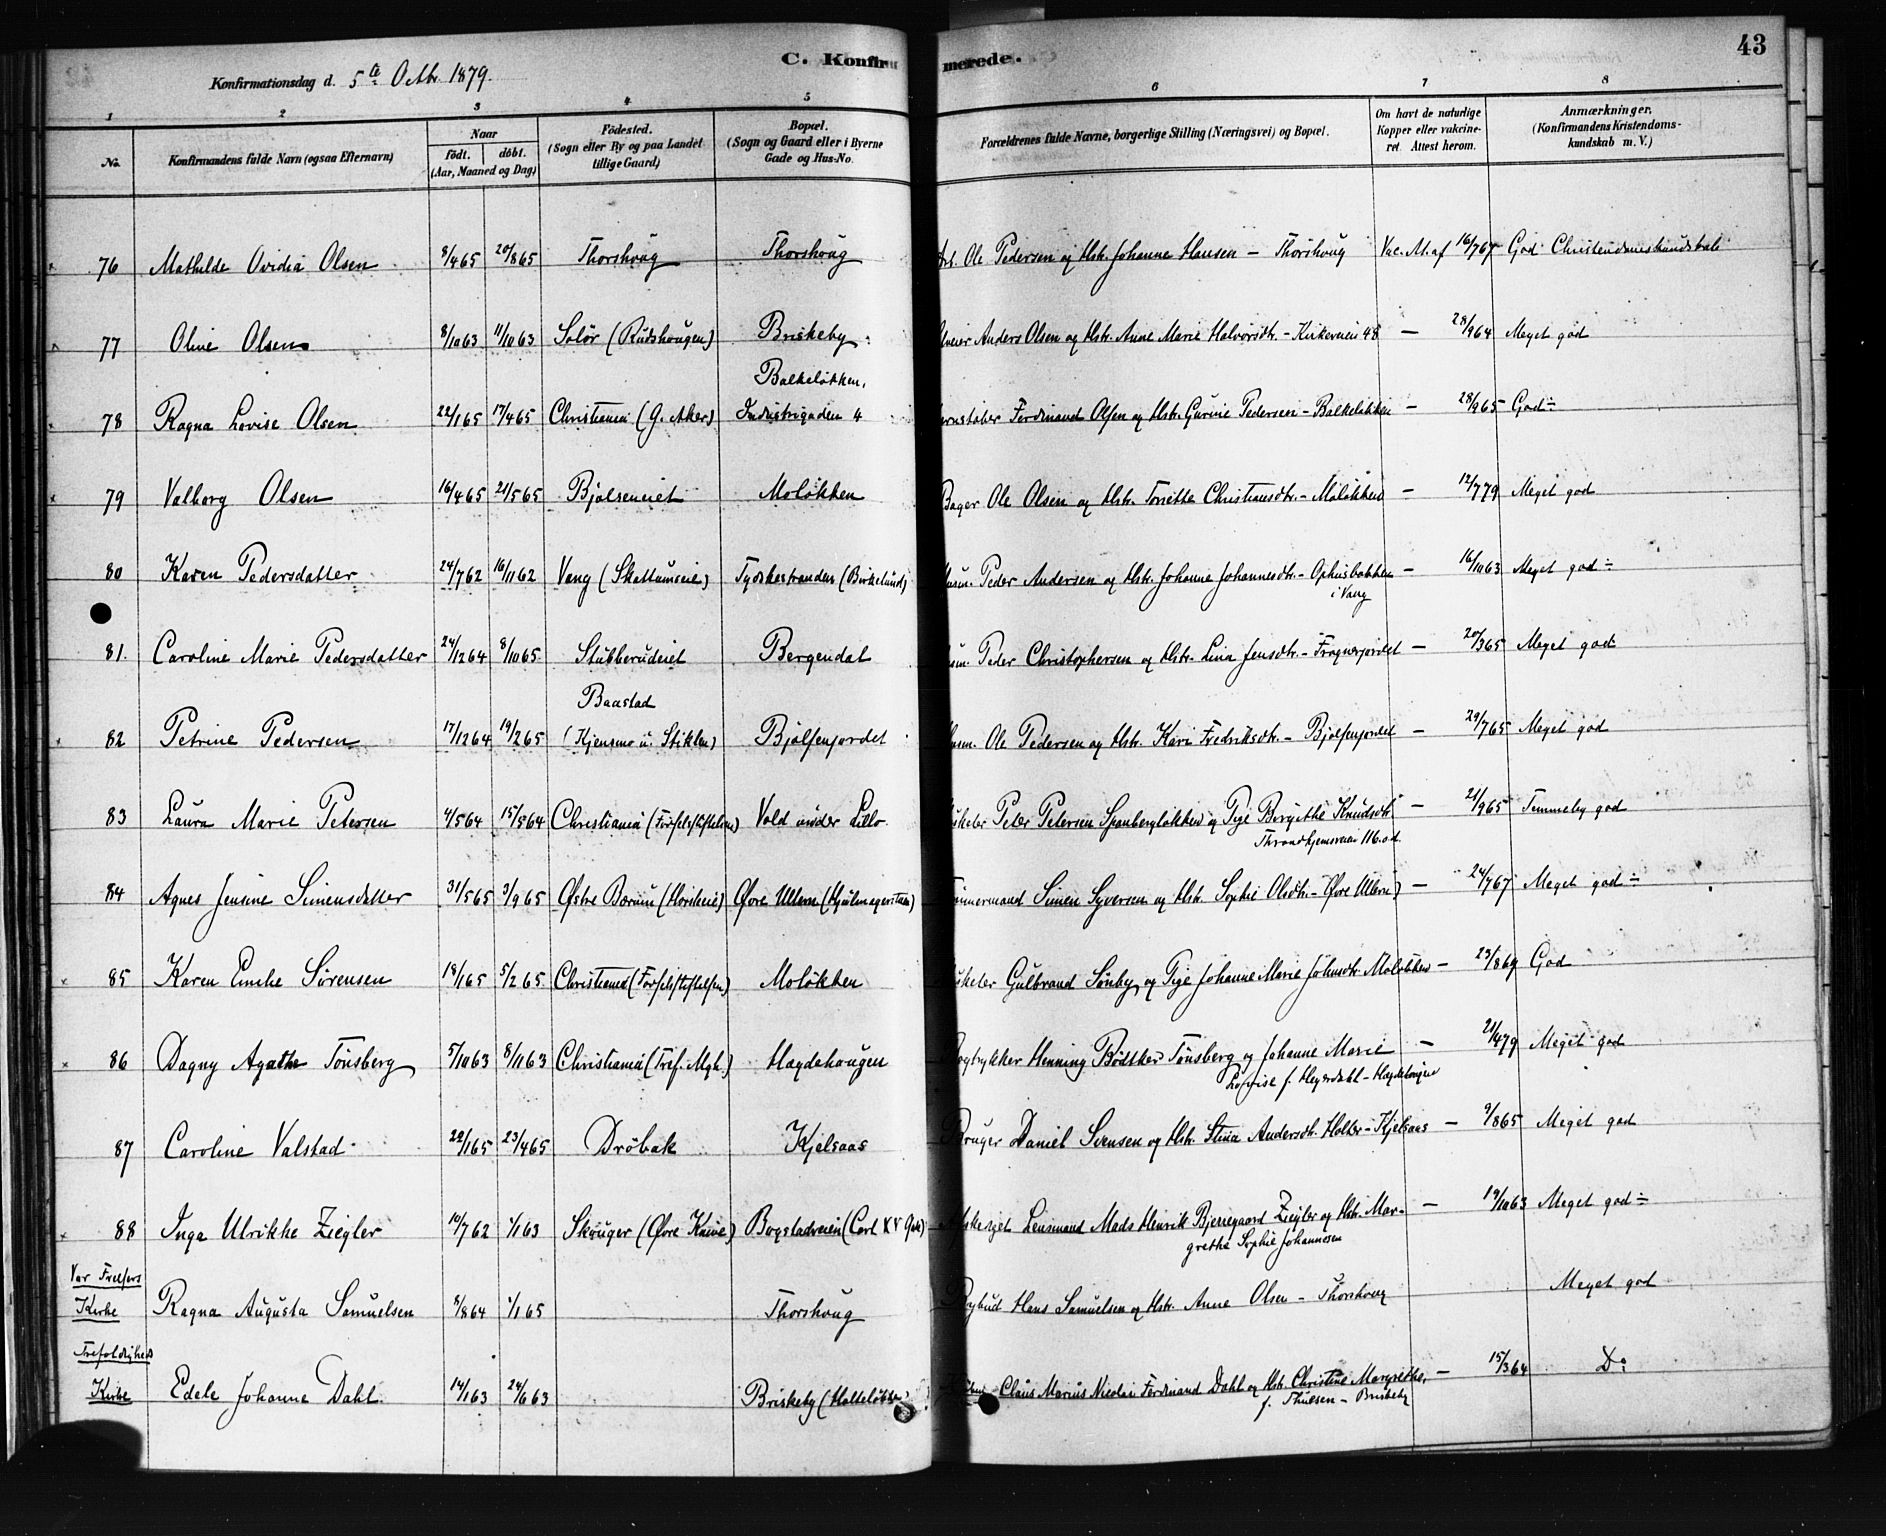 C. Konfirmerede.
43
Konfirmationsdag d. 5te Octbr. 1879.
1 2 3 4 5 6 7 8
No. Konfirmandens fulde Navn (ogsaa Efternavn) Naar födt. döbt. (Aar, Maaned og Dag) Födested. (Sogn eller By og paa Landet tillige Gaard) Bopæl. (Sogn og Gaard eller i Byerne Gade og Hus-No. Forældrenes fulde Navne, borgerlige Stilling (Næringsvei) og Bopæl. Om havt de naturlige Kopper eller vakcineret. Attest herom. Anmærkninger. (Konfirmandens Kristendomskundskab m. V.)
76 Mathilde Ovidia Olsen 8/4 65 20/8 65 Thorshoug Thorshoug Arb. Ole Pedersen og Hstr. Johanne Hansen – Thorshoug Vac. At. af 16/7 67 God Christendomskundskab
77 Oline Olsen 8/10 63 11/10 63 Solør (Rudshougen) Briskeby Anders Olsen og Hstr. Anne Marie Halvorsdtr. – Kirkeveien 48 – 28/9 64 Meget god
78 Ragna Lovise Olsen 22/1 65 17/4 65 Christiania (G. Aker) Balkeløkken, Industrigaden 4 Ferdinand Olsen og Hstr. Gurine Pedersen – Balkeløkken – 28/9 65 God ÷
79 Valborg Olsen 16/4 65 21/5 65 Bjølseneiet Moløkken Bager Ole Olsen og Hstr. Torette Christiansdtr. – Moløkken – 12/7 79 Meget god
80 Karen Pedersdatter 24/7 62 16/11 62 Vang (Skattumseie) Tyskestranden (Birkelund) Husm. Peder Andersen og Hstr. Johanne Johannesdtr. – Ophusbakken i Vang – 16/10 63 Meget god ÷
81. Caroline Marie Pedersdatter 24/12 64 8/10 65 Stubberudeiet Bergendal Husm. Peder Christophersen og Hstr. Lina Jensdtr. – Frognerjordet – 20/3 65 Meget god
82 Petrine Pedersen 17/12 64 19/2 65 Baastad (Kjensmo u. Stiklen) Bjølsenjordet Husm. Ole Pedersen og Hstr. Kari Fredriksdtr. – Bjølsenjordet – 29/7 65 Meget god
83 Laura Marie Petersen 4/5 64 15/5 64 Christiania (Førselsstiftelsen) Vold under Lillo Peter Petersen Spanbergløkken og Pige Birgithe Knudsdtr. Throndhjemsveien 116. – 21/9 65 Temmelig god
84 Agnes Jensine Simensdatter 31/5 65 3/9 65 Østre Bærum (Horskeie) Øvre Ullern (Hjulmagerstuen) Tømmermand Simen Syversen og Hstr. Sophie Olsdtr. – Øvre Ullern – 24/7 67 Meget god ÷
85 Karen Emilie Sørensen 18/1 65 5/2 65 Christiania (Førselsstiftelsen) Moløkken Gulbrand Sønby og Pige Johanne Marie Johnsdtr. Moløkken – 23/8 69 God
86 Dagny Agathe Tønsberg 5/10 63 8/11 63 Christiania (Tref. Mgh.) Hægdehougen Bogtrykker Henning Bødtker Tønsberg og Johanne Marie Lovise f. Heyerdahl – Hægdehougen – 21/4 79 Meget god
87 Caroline Valstad 22/1 65 23/4 65 Drøbak Kjelsaas Bruger Daniel Svensen og Hstr. Stina Andersdtr. Holter – Kjelsaas – 9/8 65 Meget god
88 Inga Ulrikke Ziegler 10/7 62 1/1 63 Skouger (Øvre Knive) Bogstadveien (Carl XV Gade) Afskeget Lensmand Mads Henrik Bjerregaard Ziegler og Hstr. Margrethe Sophie Johannesen – 19/10 63 Meget god ÷
Vor Frelsers Kirke Ragna Augusta Samuelsen 8/8 64 1/1 65 Thorshoug Bybud Hans Samuelsen og Hstr. Anne Olsen – Thorshoug Meget god
Trefoldigheds Kirke Edele Johanne Dahl 14/1 63 24/6 63 Briskeby (Holteløkken) Claus Marius Nicolai Ferdinand Dahl og Hstr. Christine Margrethe, f. Thulsen – Briskeby – 15/3 64 Do